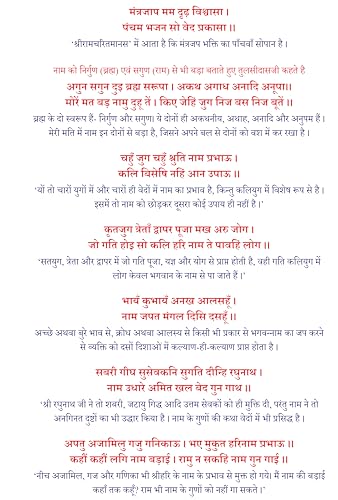 मंत्रजाप मम दृढ़ बिस्वासा ।
पंचम भजन सो बेद प्रकासा ।।
'श्रीरामचरितमानस' में आता है कि मंत्रजप भक्ति का पाँचवाँ सोपान है ।
नाम को निर्गुण (ब्रह्म) एवं सगुण (राम) से भी बड़ा बताते हुए तुलसीदासजी कहते है
अगुन सगुन दुइ ब्रह्म सरूपा । अकथ अगाध अनादि अनूपा।।
मोरें मत बड़ नामु दुहू तें । किए जेहिं जुग निज बस निज बूतें ।।
ब्रह्म के दो स्वरूप हैं- निर्गुण और सगुण। ये दोनों ही अकथनीय, अथाह, अनादि और अनुपम हैं ।
मेरी मति में नाम इन दोनों से बड़ा है, जिसने अपने बल से दोनों को वश में कर रखा है ।
चहुँ जुग चहुँ श्रुति नाम प्रभाऊ ।
कलि बिसेषि नहिं आन उपाऊ ।।
'यों तो चारों युगों में और चारों ही वेदों में नाम का प्रभाव है, किन्तु कलियुग में विशेष रूप से है ।
इसमें तो नाम को छोड़कर दूसरा कोई उपाय ही नहीं है ।'
कृतजुग त्रेताँ द्वापर पूजा मख अरु जोग ।
जो गति होइ सो कलि हरि नाम ते पावहिं लोग ।।
'सतयुग, त्रेता और द्वापर में जो गति पूजा, यज्ञ और योग से प्राप्त होती है, वही गति कलियुग में
लोग केवल भगवान के नाम से पा जाते हैं ।'
भायँ कुभायँ अनख आलसहूँ ।
नाम जपत मंगल दिसि दसहूँ ।।
अच्छे अथवा बुरे भाव से, क्रोध अथवा आलस्य से किसी भी प्रकार से भगवन्नाम का जप करने
से व्यक्ति को दसों दिशाओं में कल्याण-ही-कल्याण प्राप्त होता है ।
सबरी गीध सुसेवकनि सुगति दीन्हि रघुनाथ ।
नाम उधारे अमित खल बेद गुन गाथ ।।
'श्री रघुनाथ जी ने तो शबरी, जटायु गिद्ध आदि उत्तम सेवकों को ही मुक्ति दी, परंतु नाम ने तो
अनगिनत दुष्टों का भी उद्धार किया है । नाम के गुणों की कथा वेदों में भी प्रसिद्ध है ।
अपतु अजामिलु गजु गनिकाऊ । भए मुकुत हरिनाम प्रभाऊ ।।
कहौं कहाँ लगि नाम बड़ाई । रामु न सकहिं नाम गुन गाई ।।
'नीच अजामिल, गज और गणिका भी श्रीहरि के नाम के प्रभाव से मुक्त हो गये। मैं नाम की बड़ाई
कहाँ तक कहूँ? राम भी नाम के गुणों को नहीं गा सकते ।'